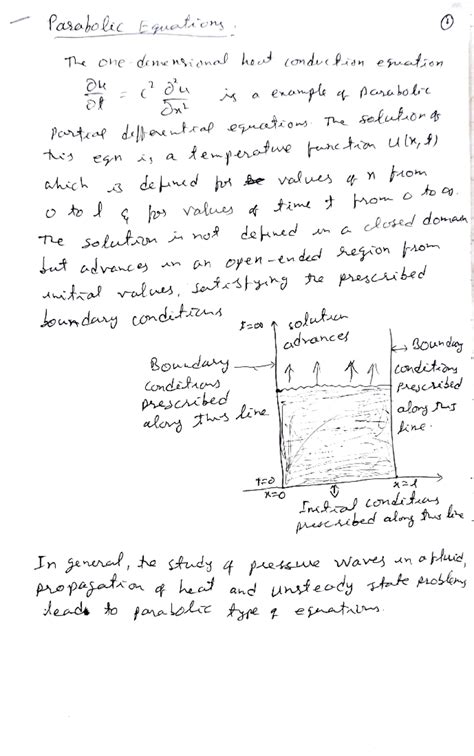 Parabolic Equations.
①
The one-dimensional heat conduction equation
∂u/∂t = c² ∂²u/∂x² is a example of parabolic
partial differential equations. The solution of
this eqn is a temperature function U(x,t)
which is defined for values of x from
0 to l & for values of time t from 0 to ∞.
The solution is not defined in a closed domain
but advances in an open-ended region from
initial values, satisfying the prescribed
boundary conditions
t=∞
solution
advances
Boundary
conditions
prescribed
along this line
Boundary
conditions
prescribed
along this
line.
t=0
x=0
x=l
Initial conditions
prescribed along this line
In general, the study of pressure waves in a fluid,
propagation of heat and unsteady state problems
leads to parabolic type of equations.